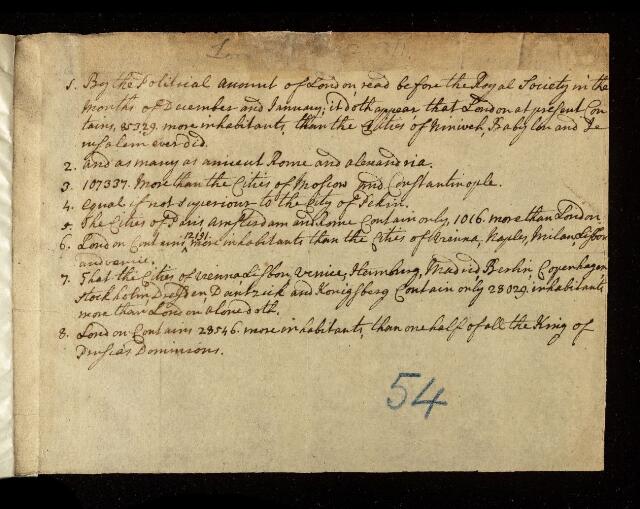 1. By the Political account of London, read before the Royal Society in the
months of December and January, it doth appear that London at present Con
tains, 85329. more inhabitants, than the Cities of Niniveh, Babylon and Je
rusalem ever did.
2. and as many as antient Rome and alexandria.
3. 107337. More than the Cities of Moscow and Constantinople.
4. equal if not superiour to the City of Pekin.
5. The Cities of Paris amsterdam and Rome Contain only, 1016. more than London
6. London Contains 12131 more inhabitants than the Cities of Vienna, Naples, Milan Lisbon
and venice.
7. That the Cities of vienna Lisbon, venice, Hamburg, Madrid Berlin, Copenhagen
Stockholm, Dresden, Dantzick and Konigsberg Contain only 28029. inhabitants
more than London alone doth.
8. London Contains 28546. more inhabitants, than one half of all the King of
Prusias Dominions.
54